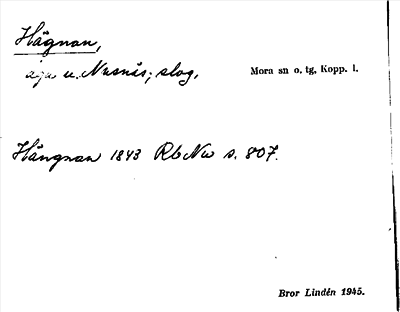 Hågnan,
äga u. Nusnäs; slog. Mora sn o. tg, Kopp. l.
Hångnan 1843 Rb Nw s. 807.
Bror Lindén 1945.